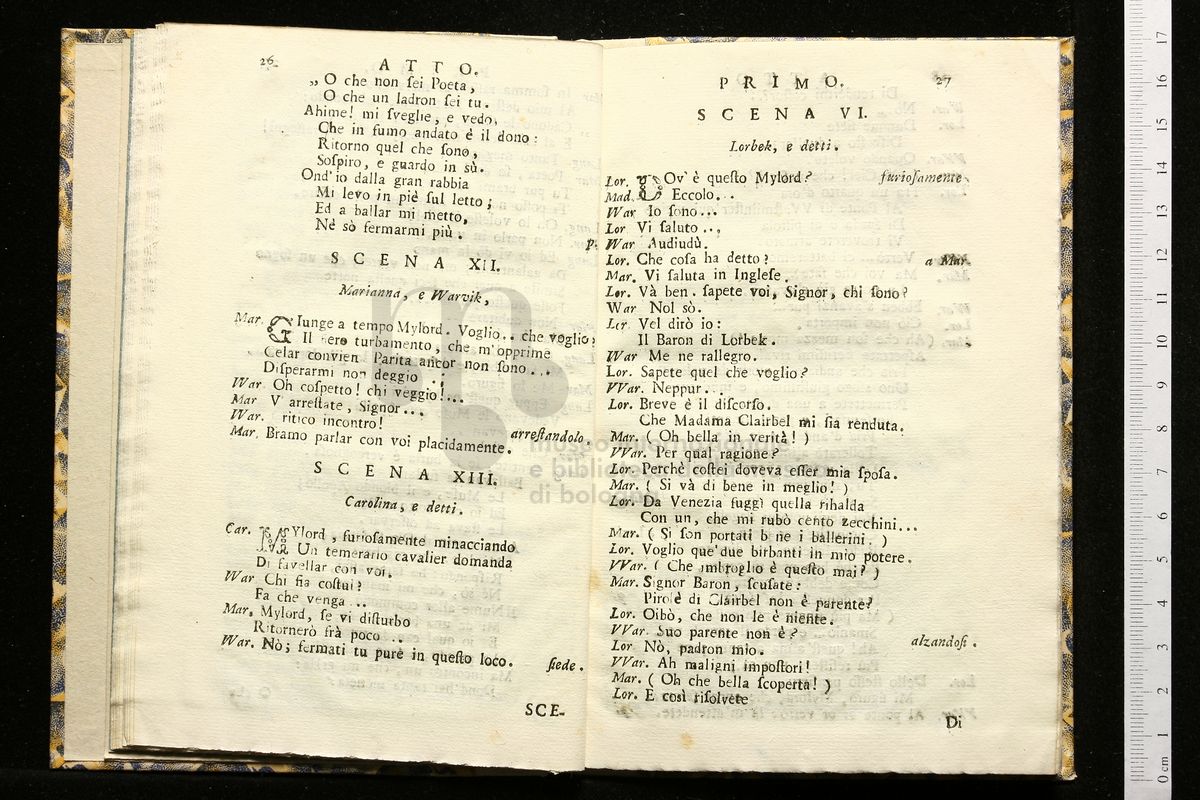 26
ATTO.
„ O che non ſei Poeta,
O che un ladron ſei tu.
Ahime! mi ſveglie, e vedo,
Che in fumo andato è il dono:
Ritorno quel che ſono,
Soſpiro, e guardo in sù.
Ond'io dalla gran rabbia
Mi levo in piè ſul letto;
Ed a ballar mi metto,
Nè sò fermarmi più.
SCENA XII.
Marianna, e Warvik,
Mar. GIunge a tempo Mylord. Voglio.. che voglio?
Il nero turbamento, che m'opprime
Celar convien. Parita ancor non ſono...
Diſperarmi non deggio ..;
War. Oh coſpetto! chi veggio!...
Mar V'arreſtate, Signor...
War. ritico incontro!
Mar. Bramo parlar con voi placidamente. arreſtandolo.
SCENA XIII.
Carolina, e detti.
Car. MYlord, furioſamente minacciando
Un temerario cavalier domanda
Di favellar con voi.
War Chi fia coſtui?
Fa che venga...
Mar. Mylord, ſe vi diſturbo
Ritornerò frà poco ..
War. Nò; fermati tu pure in queſto loco. ſiede.
SCE-
PRIMO. 27
SCENA VI.
Lorbek, e detti.
Lor. DOv' è queſto Mylord? furioſamente
Mad. Eccolo...
War Io ſono...
Lor Vi ſaluto...
War Audiudù.
Lor. Che coſa ha detto? a Mar.
Mar. Vi ſaluta in Ingleſe.
Lor. Và ben. ſapete voi, Signor, chi ſono?
War Nol sò.
Lor Vel dirò io:
Il Baron di Lorbek.
War Me ne rallegro.
Lor. Sapete quel che voglio?
VVar. Neppur...
Lor. Breve è il diſcorſo.
Che Madama Clairbel mi ſia renduta.
Mar. (Oh bella in verità!)
VVar. Per qual ragione?
Lor. Perchè coſtei doveva eſſer mia ſpoſa.
Mar. (Si và di bene in meglio!)
Lor. Da Venezia fuggì quella rihalda
Con un, che mi rubò cento zecchini...
Mar. (Si ſon portati b ne i ballerini.)
Lor. Voglio que'due birbanti in mio potere.
VVar. (Che imbroglio è queſto mai?)
Mar. Signor Baron, ſcuſate:
Pirolè di Clairbel non è parente?
Lor. Oibò, che non le è niente.
VVar. Suo parente non è? alzandoſi.
Lor Nò, padron mio.
VVar. Ah maligni impoſtori!
Mar. (Oh che bella ſcoperta!)
Lor. E così riſolvete
Di